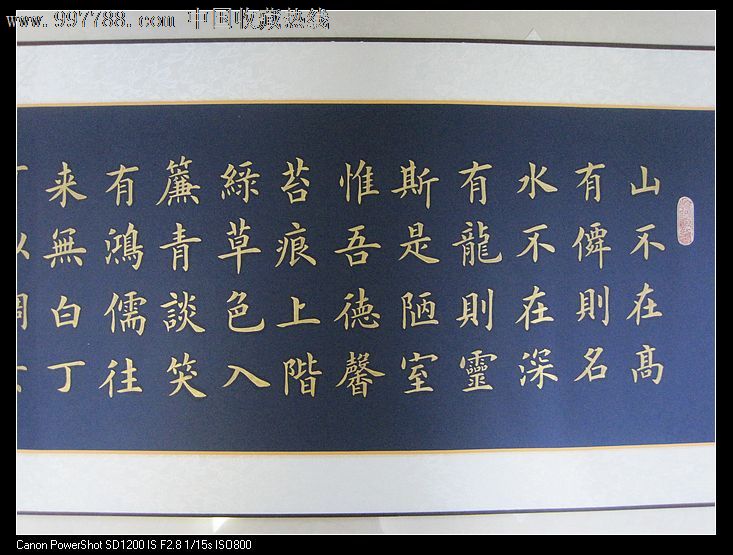 www.997788.com 中国收藏热线
山不在高
有僊則名
水不在深
有龍則靈
斯是陋室
惟吾德馨
苔痕上階
綠草色入
簾青談笑
有鴻儒往
来無白丁
Canon PowerShot SD1200 IS F2.8 1/15s ISO800